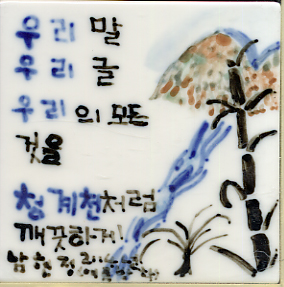 우리 말
우리 글
우리의 모든
것을
청계천처럼
깨끗하게!
남현정